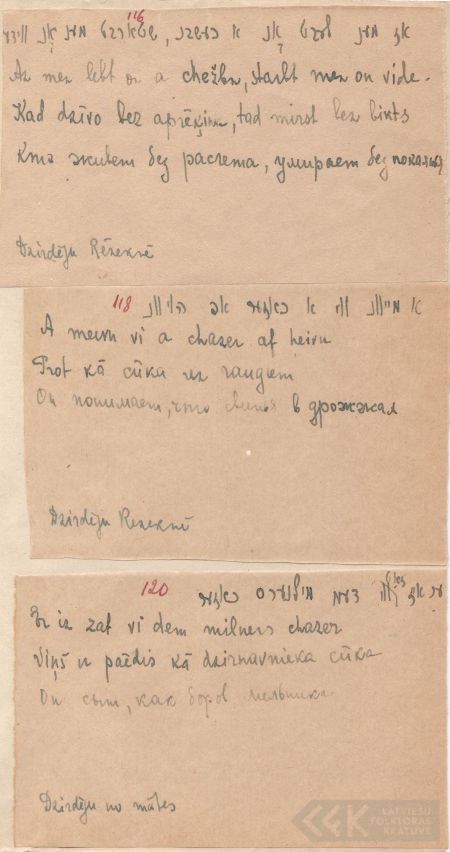 116
אז מען לעבט אָן א כעשבן, שטארבט מען אָן ווידע
Az men lebt on a chežbn, starbt men on vide.
Kad dzīvo bez aprēķina, tad mirst bez bikts
Кто живет без расчета, умирает без покаяния
Dzirdēju Rēzeknē
118
א מייוון ווי א כאזער אף הייוון
A meivn vi a chazer af heivn
Prot kā cūka uz raugiem
Он понимает, что свинья в дрожжах
Dzirdēju Rēzeknē
120
ער איז זאט ווי דעם מילנערס כאזער
Er iz zat vi dem milners chazer
Viņš ir paēdis kā dzirnavnieka cūka
Он сыт, как боров мельника
Dzirdēju no mātes
LATVIEŠU
FOLKLORAS
KRĀTUVE